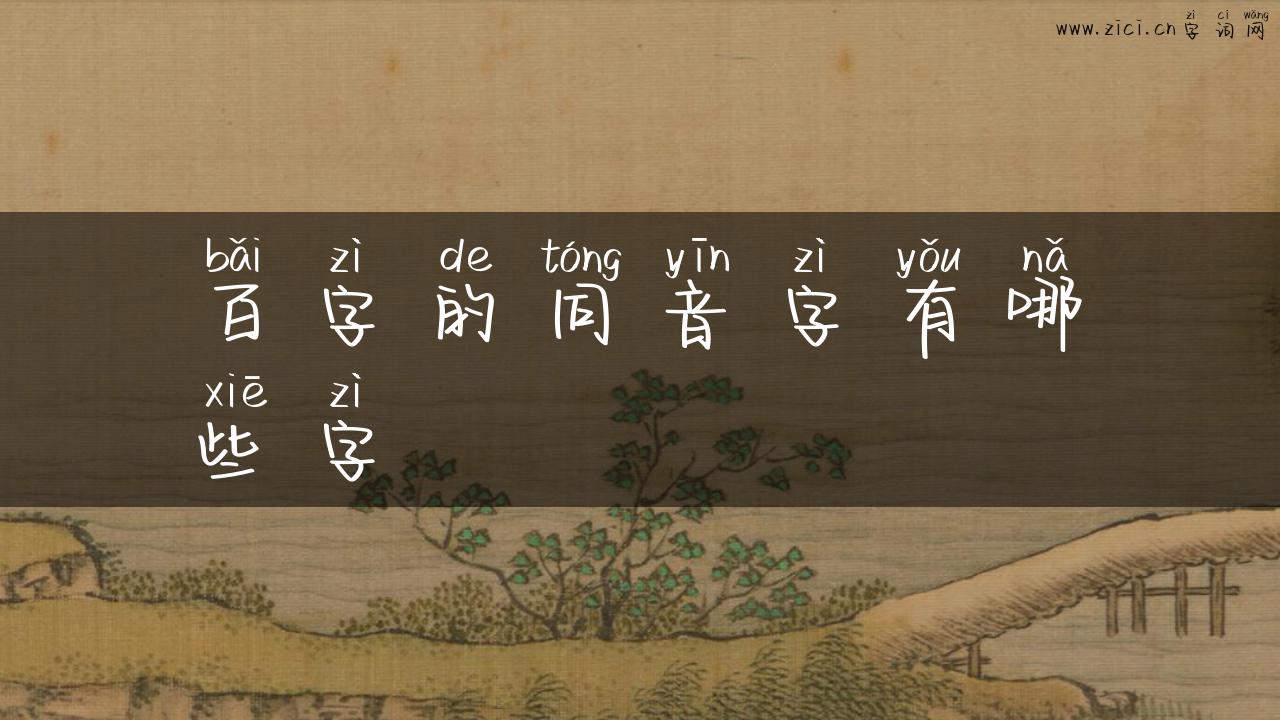 zì cí wǎng
www.zici.cn 字词网
bǎi zì de tóng yīn zì yǒu nǎ
百字的同音字有哪
xiē zì
些字